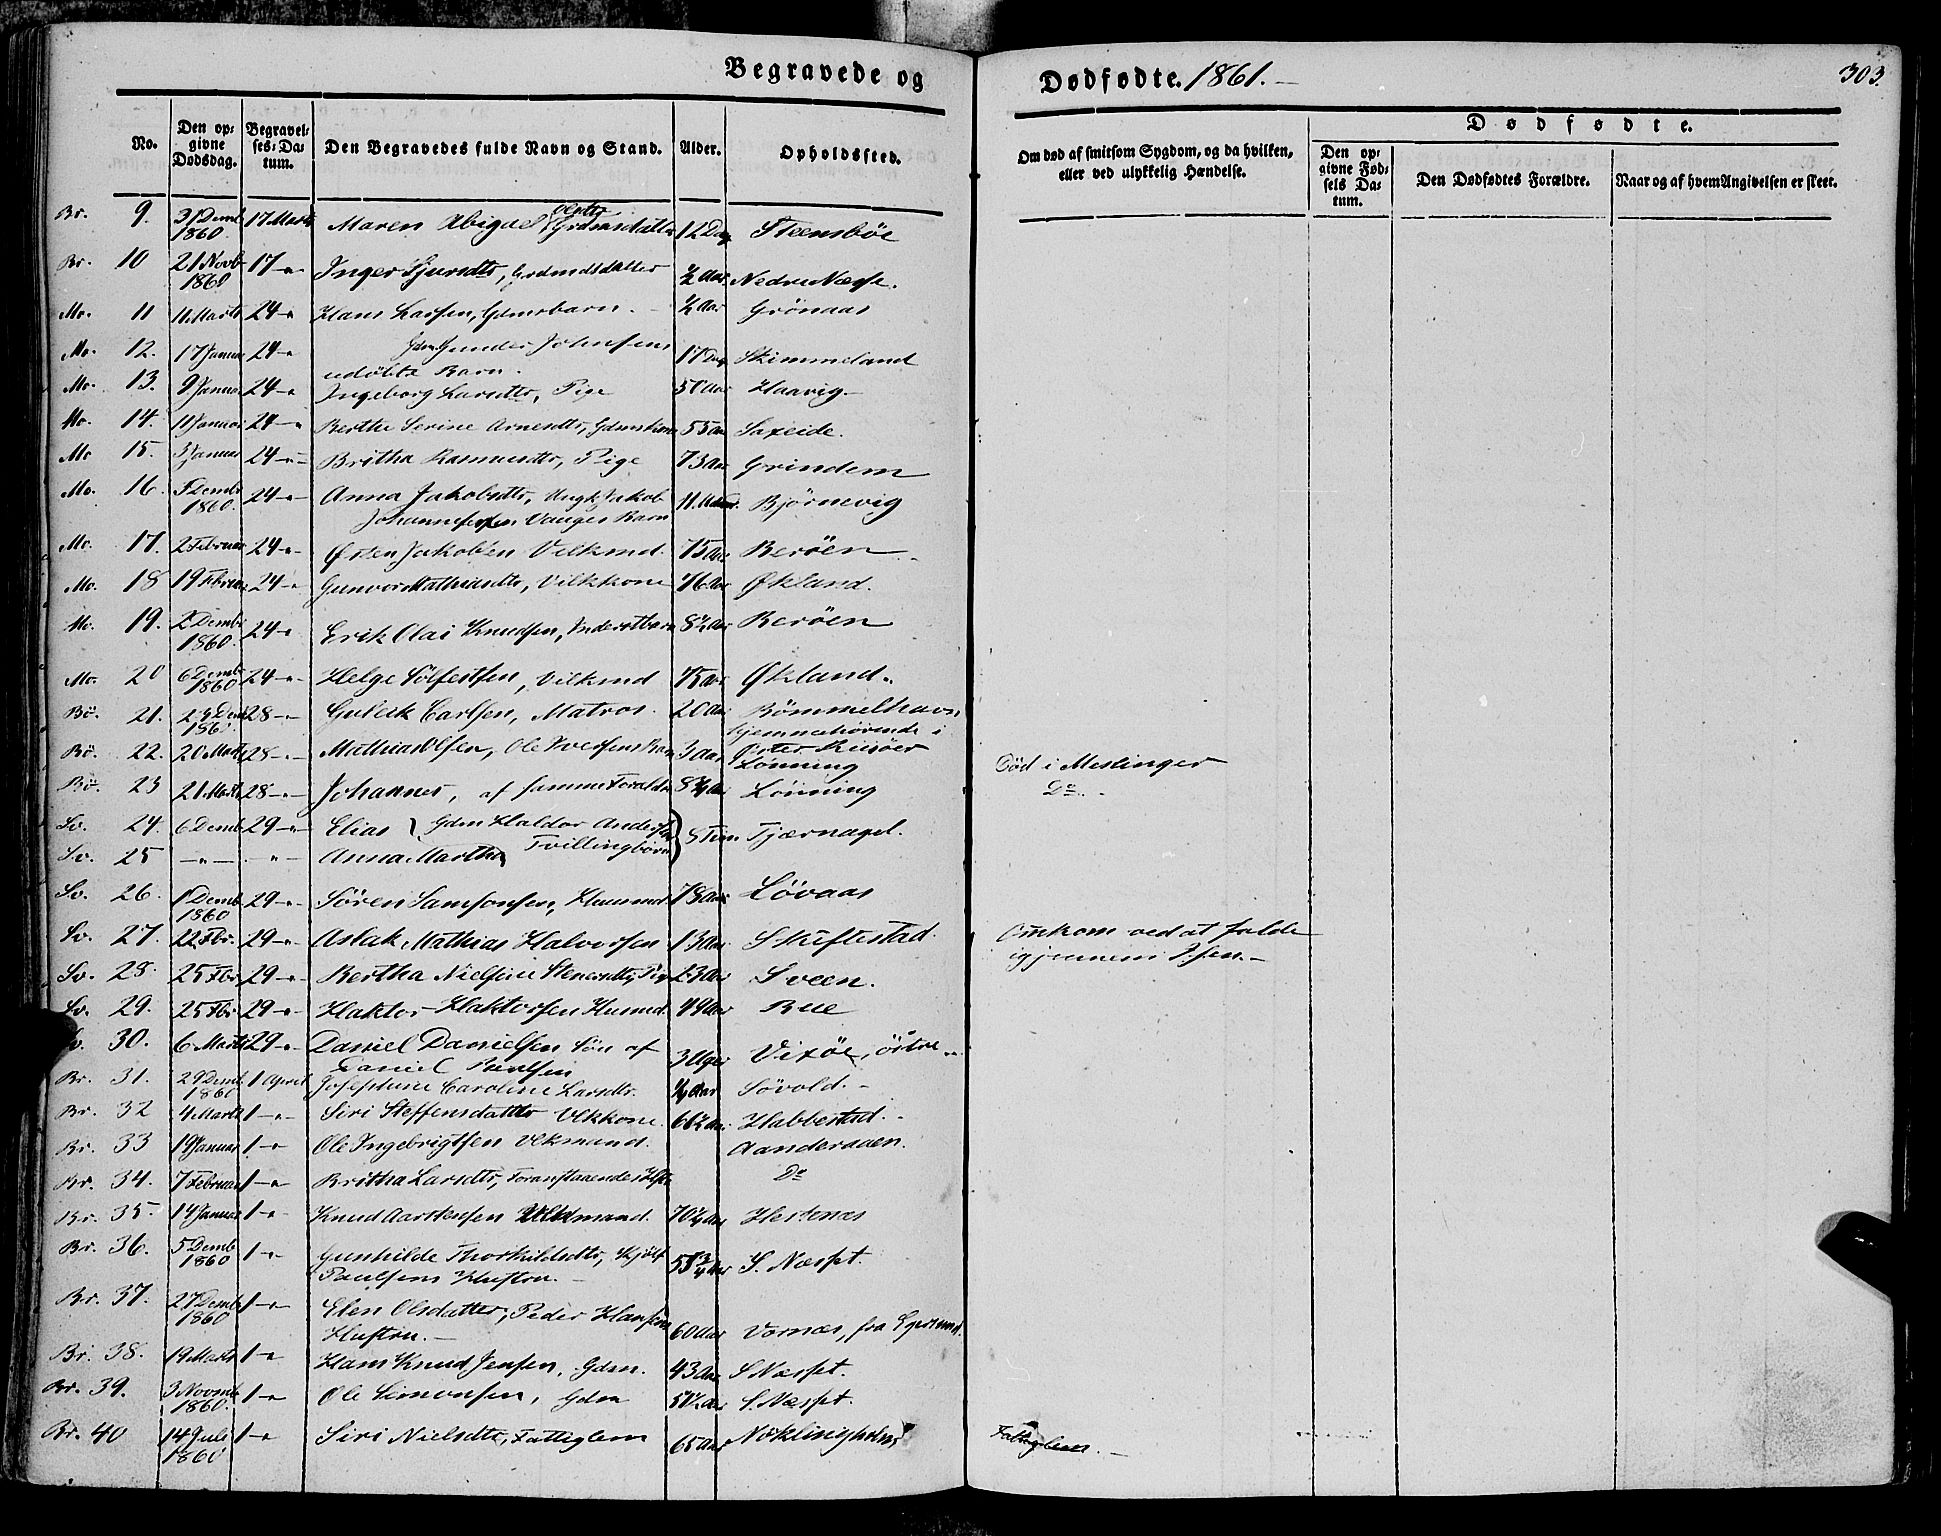 Begravede og
Dødfødte. 1861. –
303.
No.
Den op-
givne
Dødsdag.
Begravel-
ses-Da-
tum.
Den Begravedes fulde Navn og Stand.
Alder.
Opholdssted.
Om død af smitsom Sygdom, og da hvilken,
eller ved ulykkelig Hændelse.
Dødfødte.
Den op-
givne Fød-
sels Da-
tum.
Den Dødfødtes Forældre.
Naar og af hvem Angivelsen er skeet.
Br. 9. 31 Demb 1860 17 Marts Maren Abigael Grdmsdatter 12 Dag Steensböe
Br. 10 21 Novb 1860 17 -"- Inger Sjursdtr, Grdmdsdatter ½ Aar Nedre Næsse.
Mo. 11 11 Marts 24 -" Hans Larsen, Gdmsbarn. ½ Aar Grönaas
Mo. 12. 17 Januar 24 -" Gdm Gunder Johnsens
udöbte Barn. 17 Dag Skimmeland
Mo. 13. 9 Januar 24 -" Ingeborg Larsdtr, Pige 50 Aar Haavig –
Mo. 14. 11 Januar 24 -" Berthe Serine Arnesdtr, Gdmskone 55 Aar Saxeide.
Mo 15. 3 Januar 24 -"- Britha Rasmusdtr, Pige 73 Aar Grindem
Mo. 16. 5 Dembr 1860. 24 -"- Anna Jakobsdtr, Ungk Jakob
Johannessen Vauges Barn 11 Maan. Björnevig
Mo. 17. 2 Februar 24 -"- Østen Jakobsen Vilkmd. 75 Aar Beröen
Mo. 18 19 Februar 24 -" Gunvor Mathiasdtr, Vilkkone 76 Aar Økland.
Mo. 19. 2 Dembr 1860. 24 -" Erik Olai Knudsen, Inderstbarn 8½ Aar Beröen
Mo. 20 6 Dembr 1860 24 -"- Helge Sölfestsen, Vilkmd 75 Aar Økland.
Bö. 21. 23 Dem 1860. 28 -"- Guleik Carlsen, Matros. 20 Aar Bömmelhavn
hjemmehörende i
Öster Riisöer
Bö. 22. 20 Marts 28 -"- Mathias Olsen, Ole Iversens Barn 3 Aar Lönning Död i Meslinger
Bö. 23 21 Marts 28 -"- Johannes, af samme Foraldre 8¾ Aar Lönning Do. -
Sv. 24. 6 Demb. 29 -"- Elias } Gdm Haldor Andersens 5 Tim. Tjærnagel.
Sv. 25 -"- -"- Anna Martha } Tvillingbörn
Sv. 26. 1 Demb 1860 29 -"- Sören Samsonsen, Huusmd 78 Aar Lövaas
Sv. 27. 22 Fbr. 29 -"- Aslak Mathias Halvorsen 13 Aar Skiftestad. Omkom ved at falde
igjennem Isen. –
Sv. 28. 25 Fbr. 29 -"- Bertha Nielsine Stenersdtr, Pige 23 Aar Sveen.
Sv. 29. 25 Fbr 29 -"- Haktor Haktorsen Husmd. 49 Aar Rue
Sv. 30. 6 Marts 29 -"- Daniel Danielsen Sön af
Daniel 3 Uger Vixöe, östre
Br. 31. 29 Demb. 1860 1 April Josephine Caroline Larsdtr. ¼ Aar Sövold. –
Br. 32 4 Marts 1 -"- Siri Steffensdatter Vlkkone. 66½ Aar Habbestad. –
Br. 33 19 Januar 1 -" Ole Ingebrigtsen Vlkmand. Aanderaaen.
Br. 34. 7 Februar 1 -" Britha Larsdtr, Foranstaaendes Hstr Do
Br. 35 14 Januar 1 -" Knud Aartsen Vlkmand. 70¼ Aar Hestenæs
Br. 36. 5 Demb 1860 1 -" Gunhilde Thorkildsdtr, Kjölf
Paulsens Hustru. – 58¾ Aar S. Næsset.
Br. 37. 27 Demb 1860 1 -" Elen Olsdatter, Peder Hansens
Hustru. – 60 Aar Vornæs, fra Egersund.
Br. 38. 19 Marts 1 -" Hans Knud Jensen, Gdm. 43 Aar S Næsset.
Br. 39. 3 Novmb 1860. 1 -" Ole Simonsen, Gdm 50½ Aar S. Næsset.
Br. 40 14 Juli 1860 1 -" Siri Nielsdtr, Fattiglem 65 Aar Nöklingholm Fattiglem. –